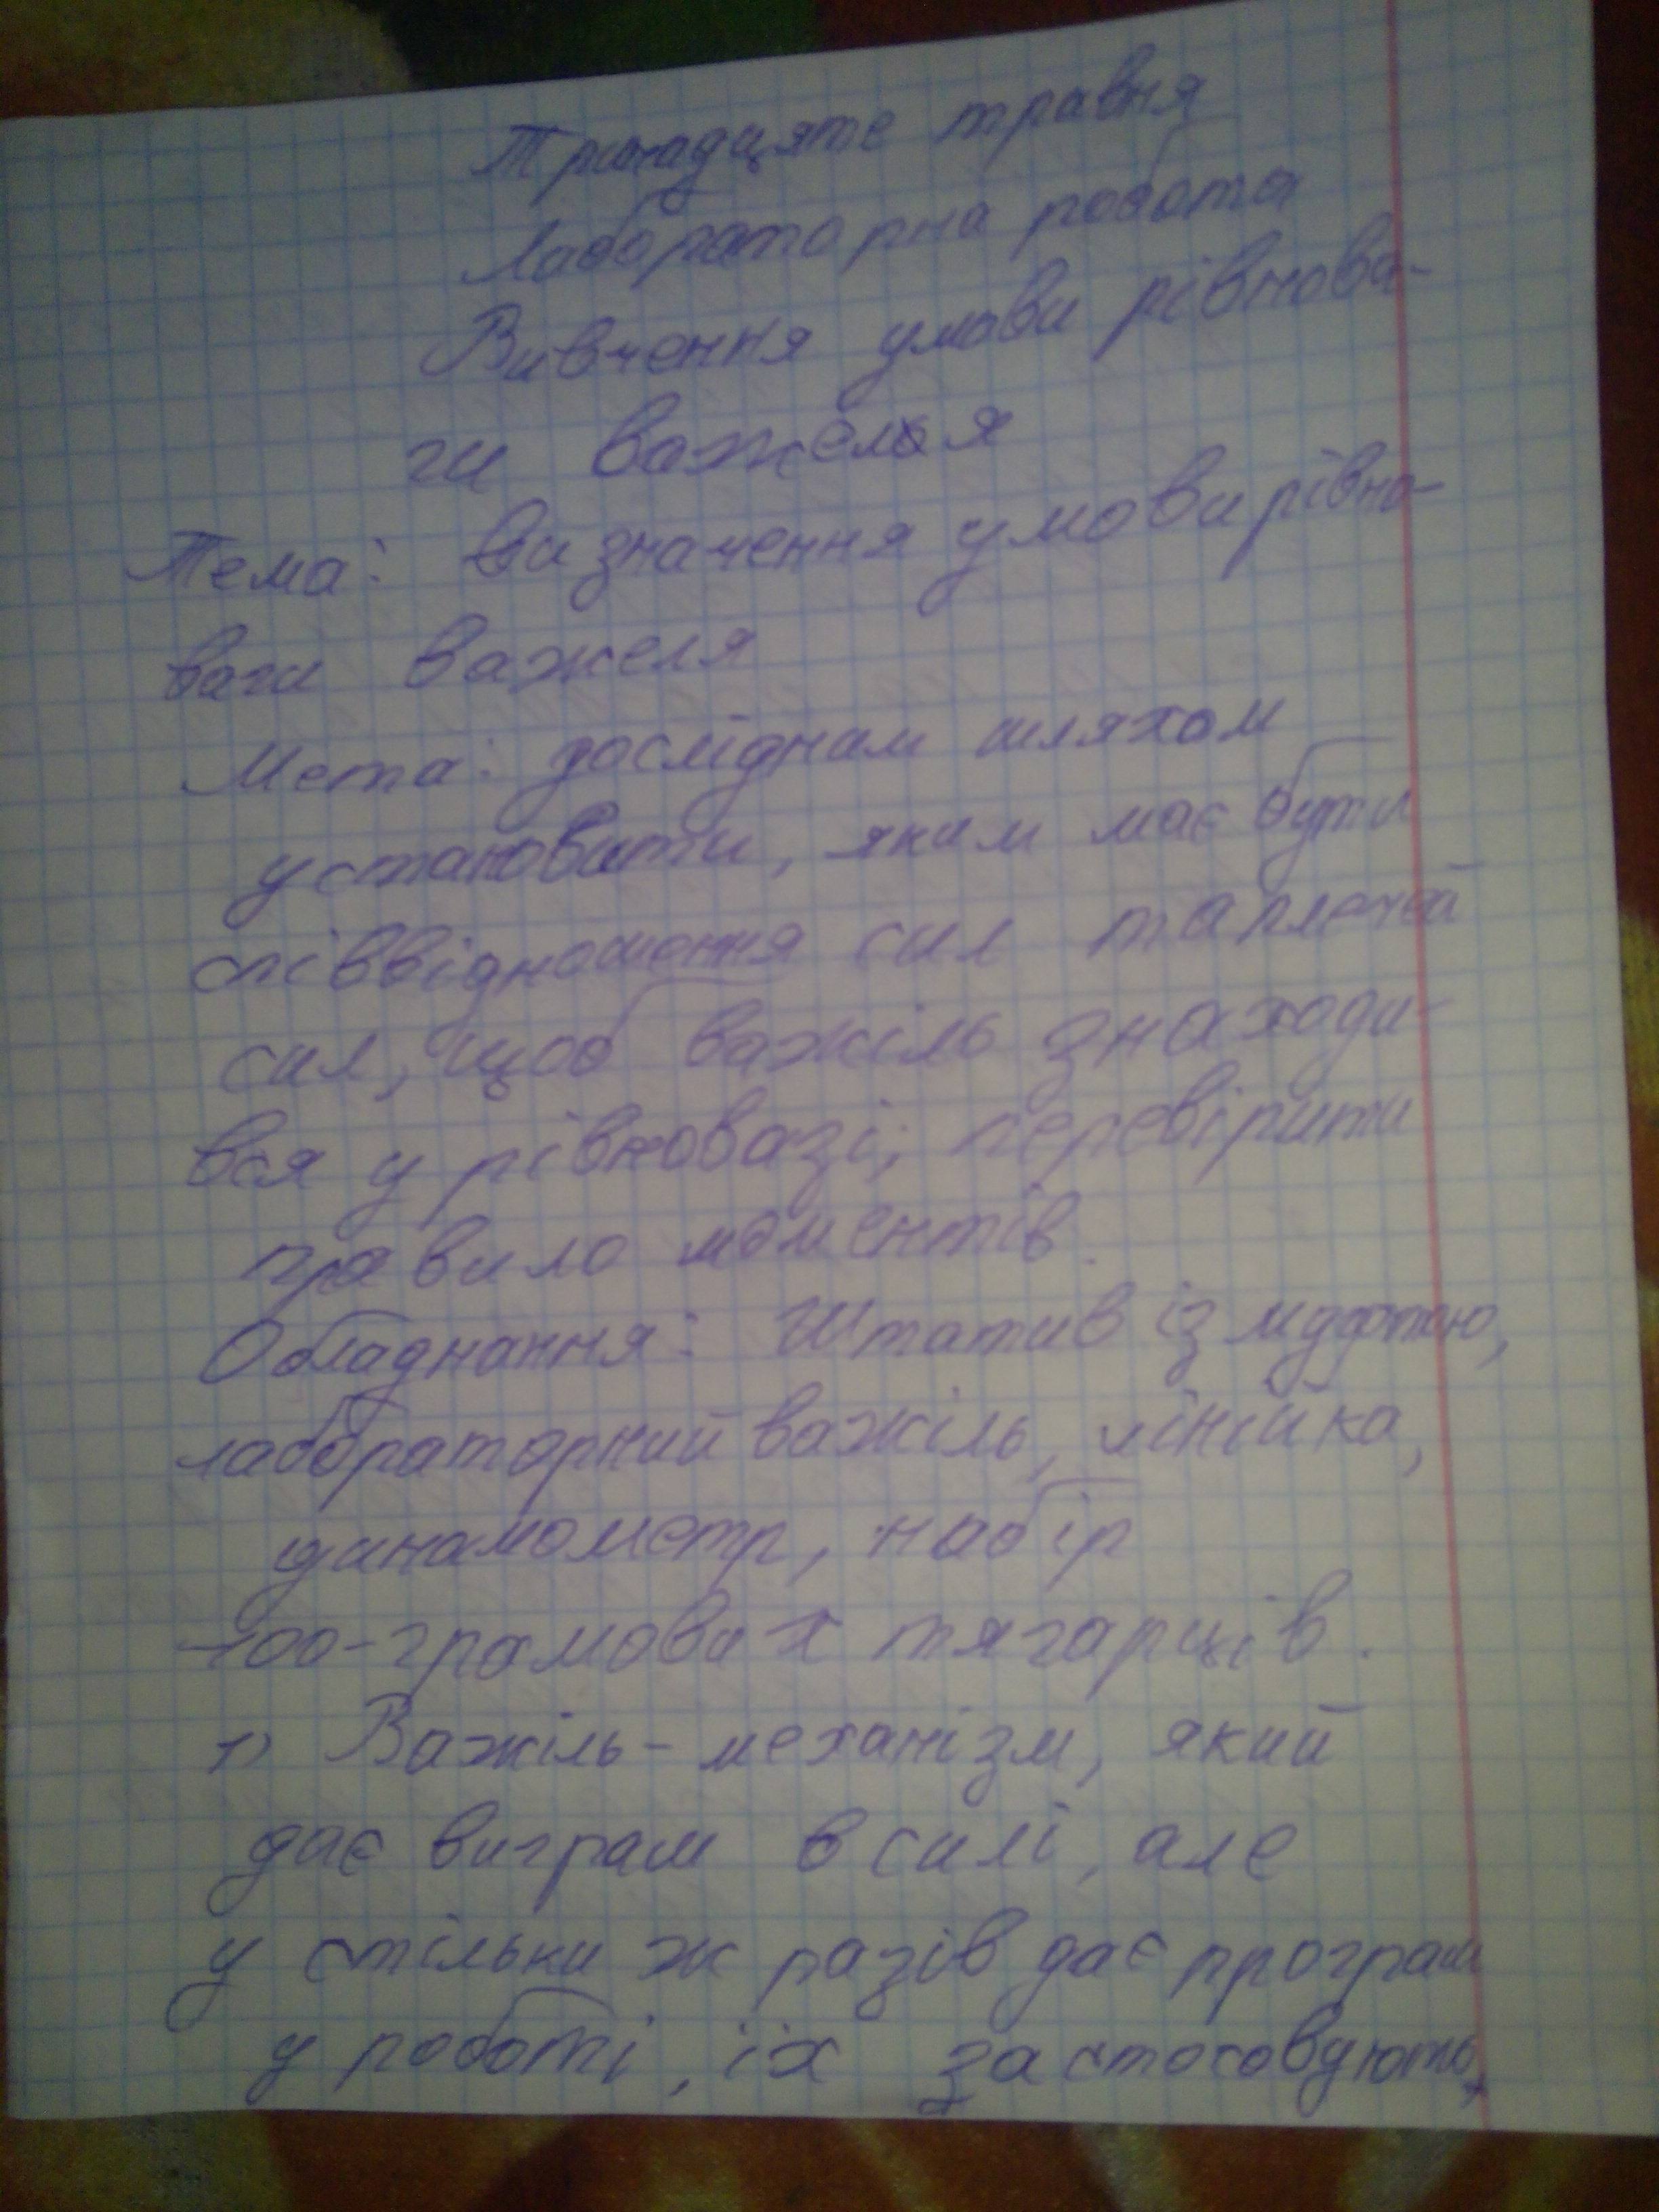 Тринадцяте травня
Лабораторна робота
Вивчення умови рівнова-
ги важеля
Тема: Визначення умови рівно-
ваги важеля
Мета: дослідним шляхом
установити, яким має бути
співвідношення сил та плечей
сил, щоб важіль знаходи-
вся у рівновазі; перевірити
правило моментів.
Обладнання: Штатив із муфтою,
лабораторний важіль, лінійка,
динамометр, набір
100-грамових тягарців.
1) Важіль - механізм, який
дає виграш в силі, але
у стільки ж разів дає програш
у роботі, їх застосовують,